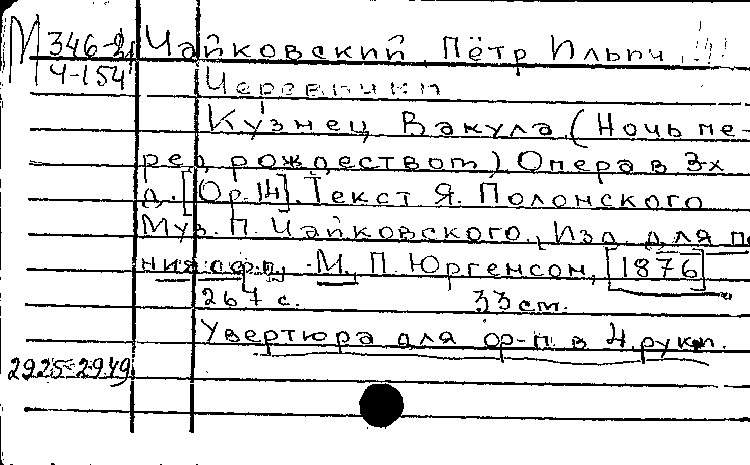 М 346-2 Чайковский, Пётр Ильич
Ч-154 Черевички
Кузнец Вакула (Ночь пе-
ред рождеством) Опера в 3х
д. [Ор. 14]. Текст Я. Полонского
Муз. П. Чайковского. Изд. для пе
ния с ф.п. - М., П. Юргенсон, [1876]
267 с. 33 см.
Увертюра для ф-п. в 4 руки.
2925-2949